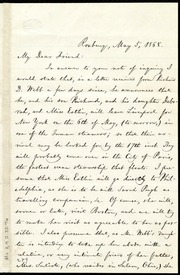 Roxbury, May 5, 1868.
My Dear Friend:
In answer to your note of inquiry I
would state that, in a letter received from Richard
D. Webb a few days since, he announces that
he, and his son Richard, and his daughter Deborah,
and Miss Estlin, will leave Liverpool for
New York on the 6th of May, (to-morrow,) in
one of the Inman steamers; so that their arrival
may be looked for by the 17th inst. They
will probably come over in the City of Paris,
the fastest ocean steamship that floats. I presume
that Miss Estlin will go directly to Philadelphia,
as she will be with Sarah Pugh as a
travelling companion, &c. Of course, she will,
soon or later, visit Boston, and we will try
to make her visit as agreeable to her as possible.
I also presume that, as Mr. Webb's purpose
in intending to take up his abode with some
relative, or very intimate friend of his father's
Mrs.